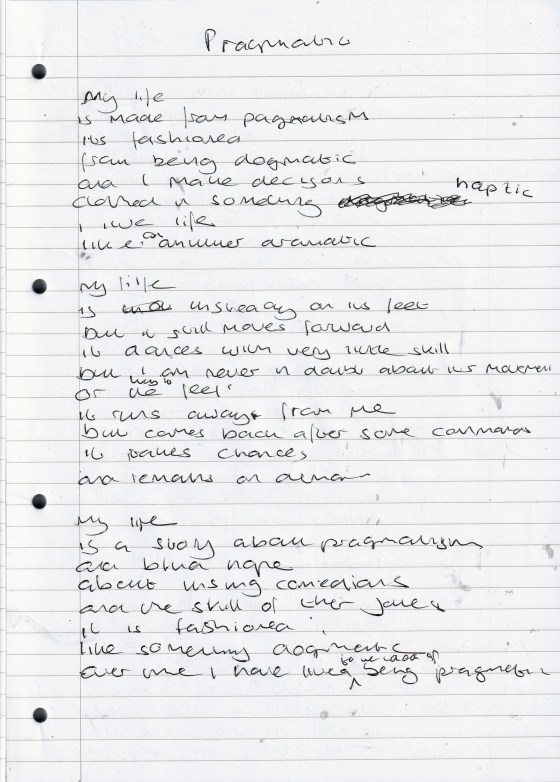 Pragmatic
My life
is made from pagmatism
its fashioned
from being dogmatic
and I make decisions
clothed in something haptic
I live life
like an dramatic
My life
is unsteady on its feet
but it still moves forward
it dances with very little skill
but I am never in doubt about its movement
or the feet
it runs away from me
but comes back after some commands
it takes chances
and remains on
My life
is a story about pragmatism
and blind hope
about comedians
and the skill of their jokes
it is fashioned
like something dogmatic
over me I have lived being pragmatic